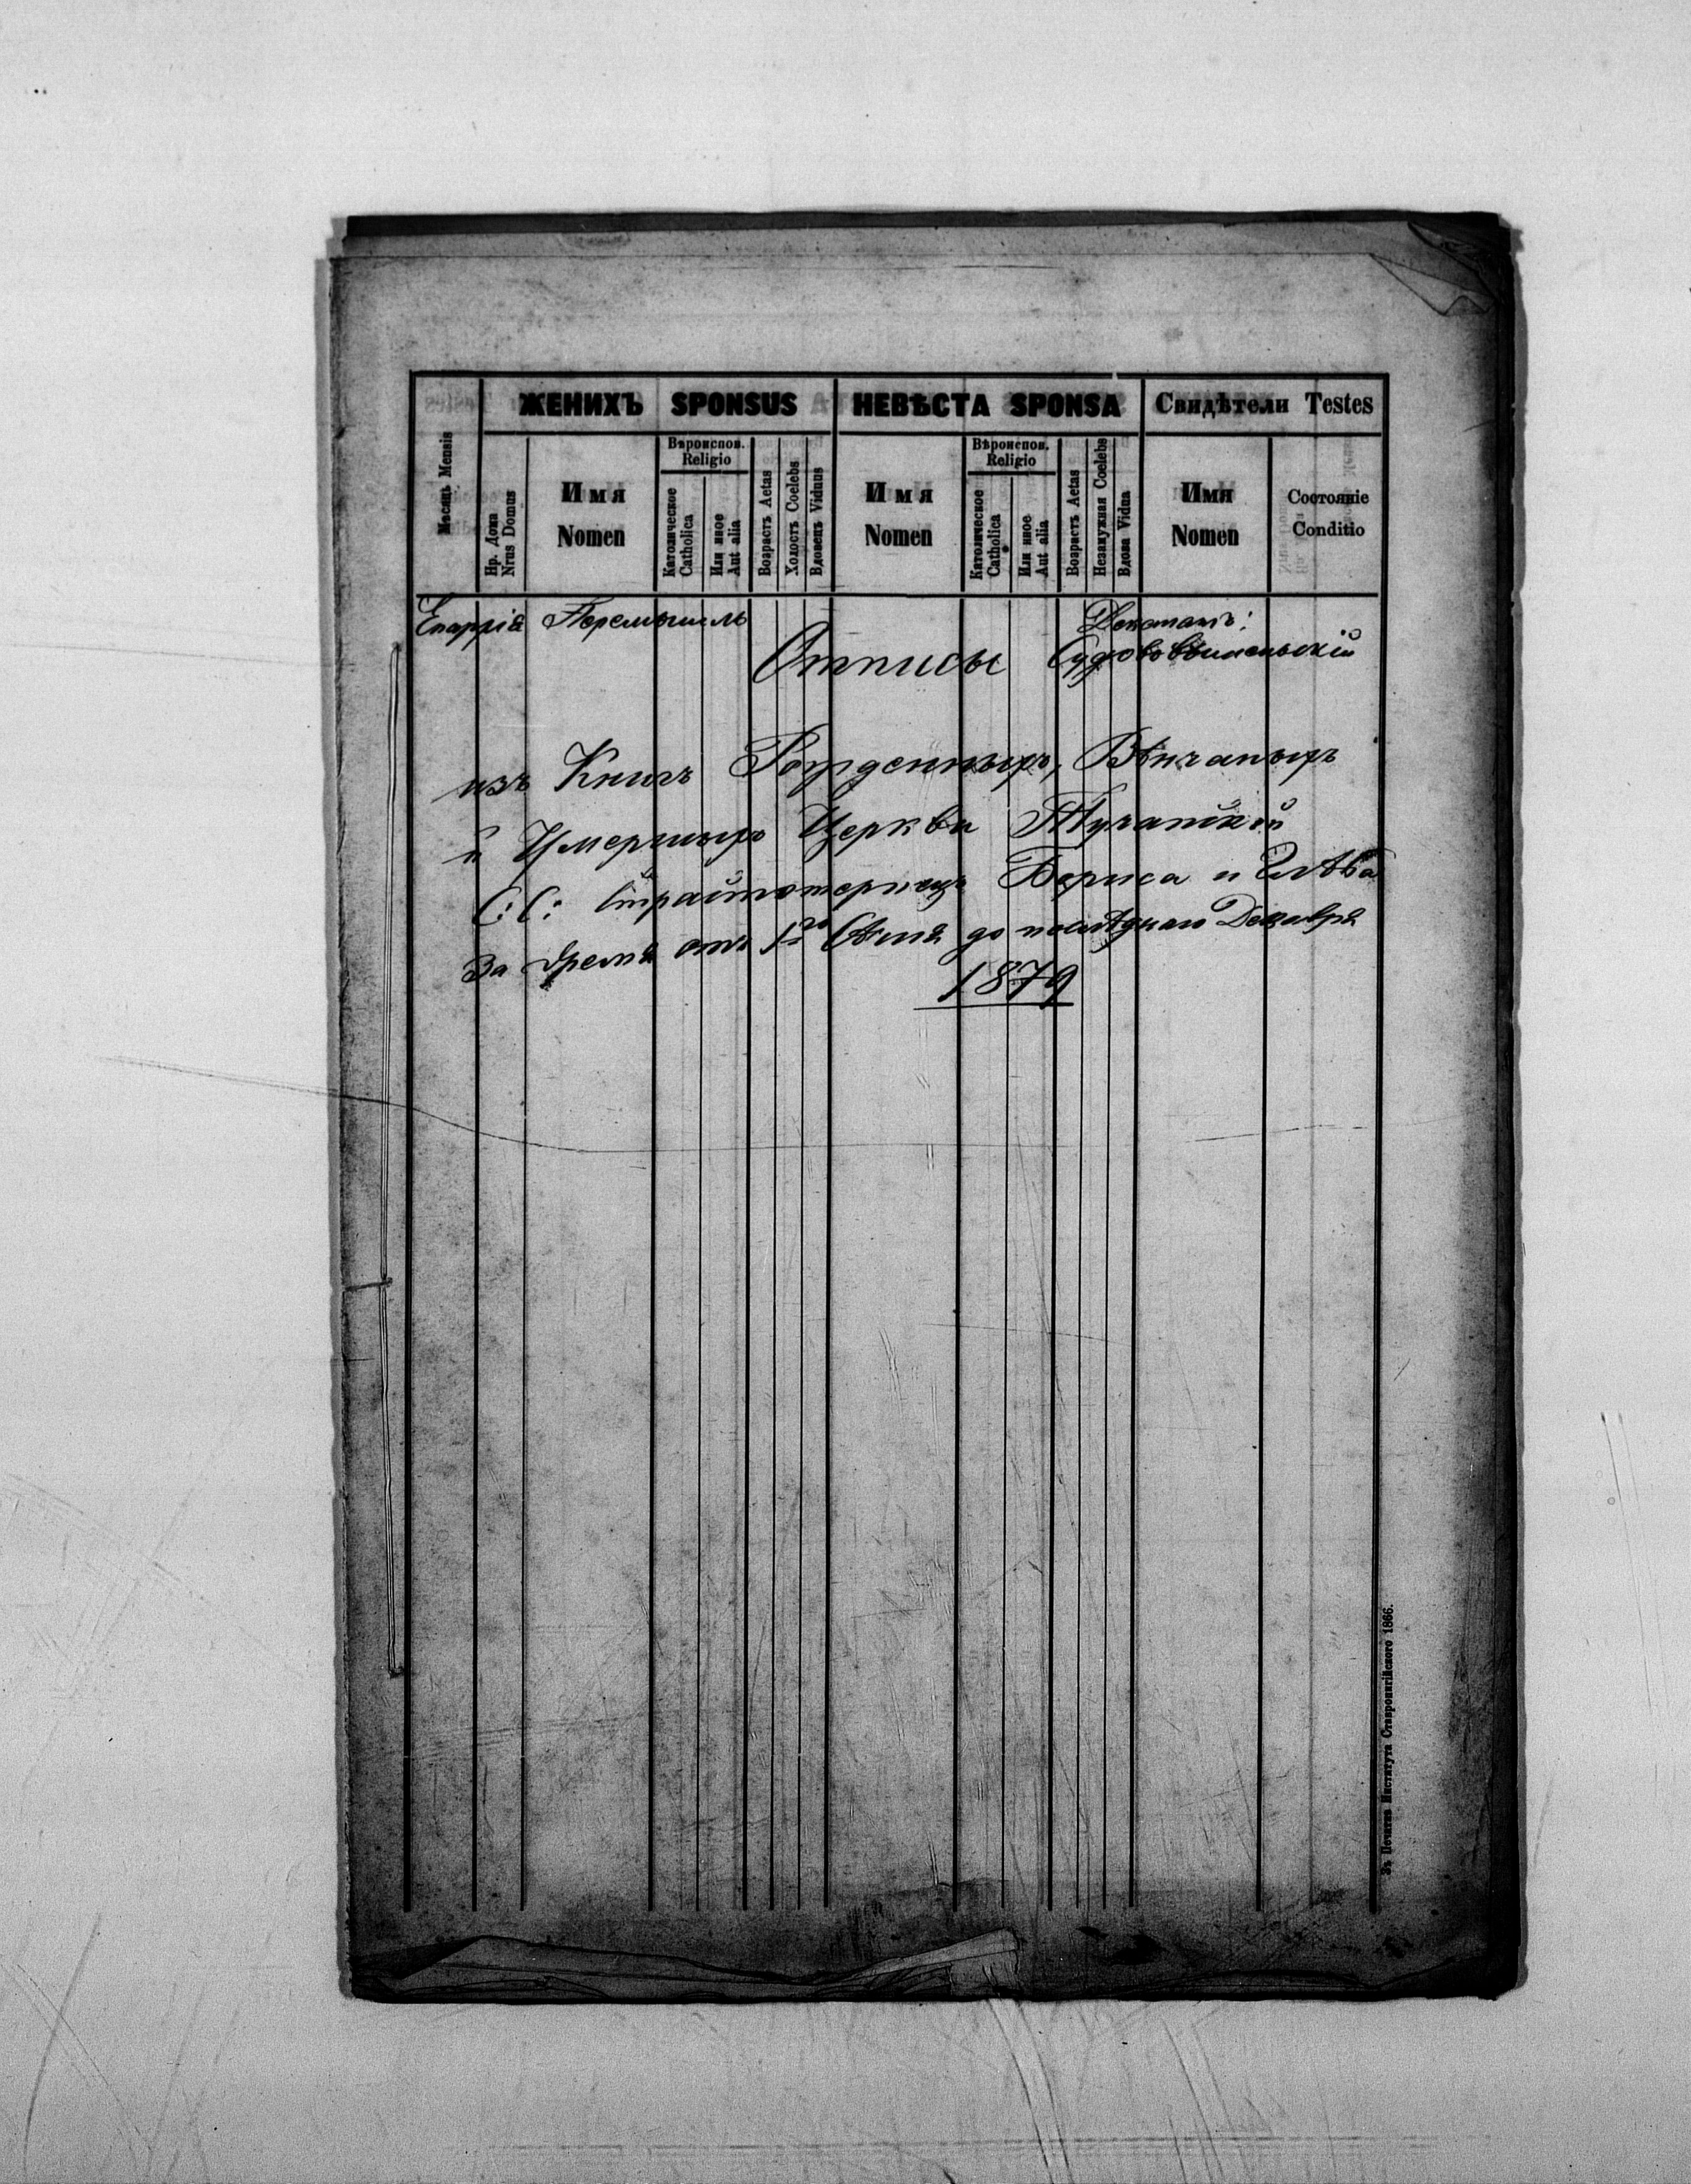 ЖЕНИХЪ SPONSUS НЕВѢСТА SPONSA Свидѣтели Testes
Мѣсяць Mensis
Нр. Дома Nrus Domus
Имя Nomen
Вѣроиспов. Religio
Католическое Catholica
Или иное Aut alia
Возрастъ Aetas
Холостъ Coelebs
Вдовецъ Viduus
Имя Nomen
Вѣроиспов. Religio
Католическое Catholica
Или иное Aut alia
Возрастъ Aetas
Незамужная Coelebs
Вдова Vidua
Имя Nomen
Состояніе Conditio
Епархія Перемышль Деканатъ:
Отписы Судововишеньскій
изъ Книгъ Рожденныхъ, Вѣнчаныхъ
и Умершыхъ Церкви Тучапской
С: С: Страстотерпецъ Бориса и Глѣба
За время отъ 1го до послѣдного Декабря
1879
Зъ Печатнѣ Института Ставропигійского 1866.